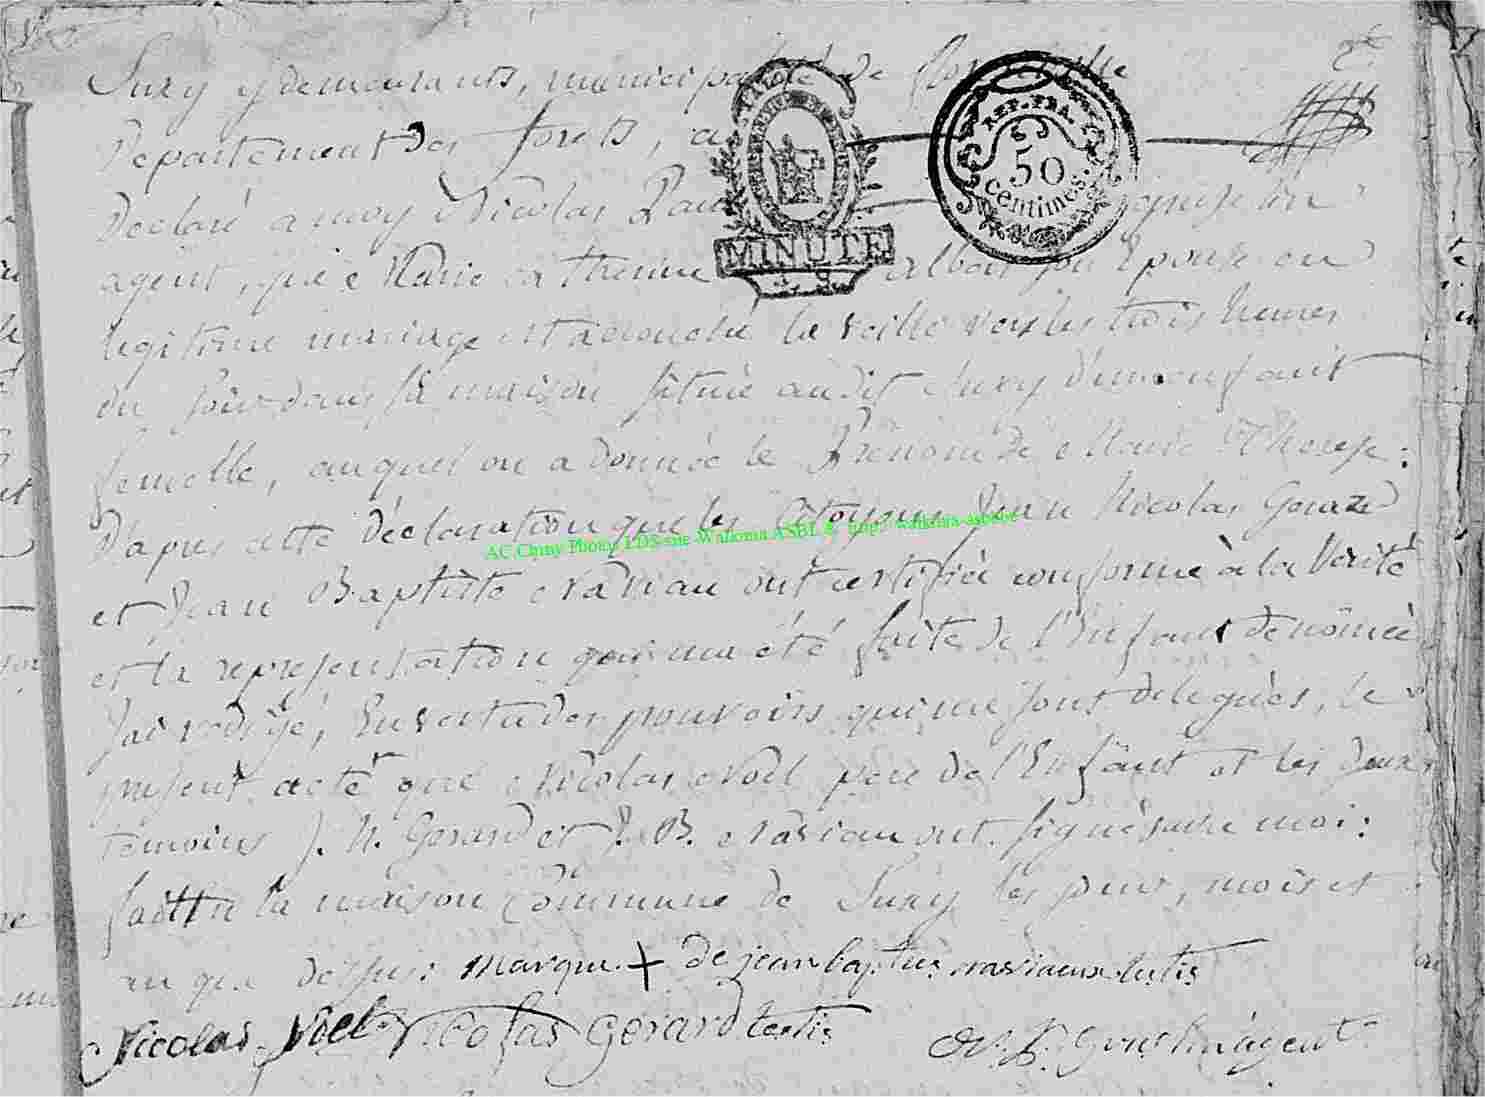 2e
Suxy y demeurants, municipalité de
REP. FRA.
50
centimes.
Departement des forets, a
Declaré a moy Nicolas
MINUTE
agent, que Marie Catherine son Epouse en
legitime mariage est accouchée la veille vers les trois heures
du soir dans sa maison situèe audit Suxy d'un enfant
femelle, auquel on a donnée le Prénom de Marie Therese:
Dapres cette déclaration que les Citoyens Jean Nicolas Gerard
AC Chiny Photo LDS site Walkona ASBL
et Jean Baptiste ont certifiée conforme à la Vérité
et la representation qui m'a été faite de l'Enfant denômée
J'ai redigé, En vertu des pouvoirs qui me sont delegués, le
present acte que Nicolas Noël père de l'Enfant et les deux
temoins J. N. Gerard et J. B. ont signés avec moi:
fait en la maison Commune de Suxy les jour, mois et
an que dessus: marque + de jean baptiste testis
Nicolas Noel Nicolas Gerard testis agent